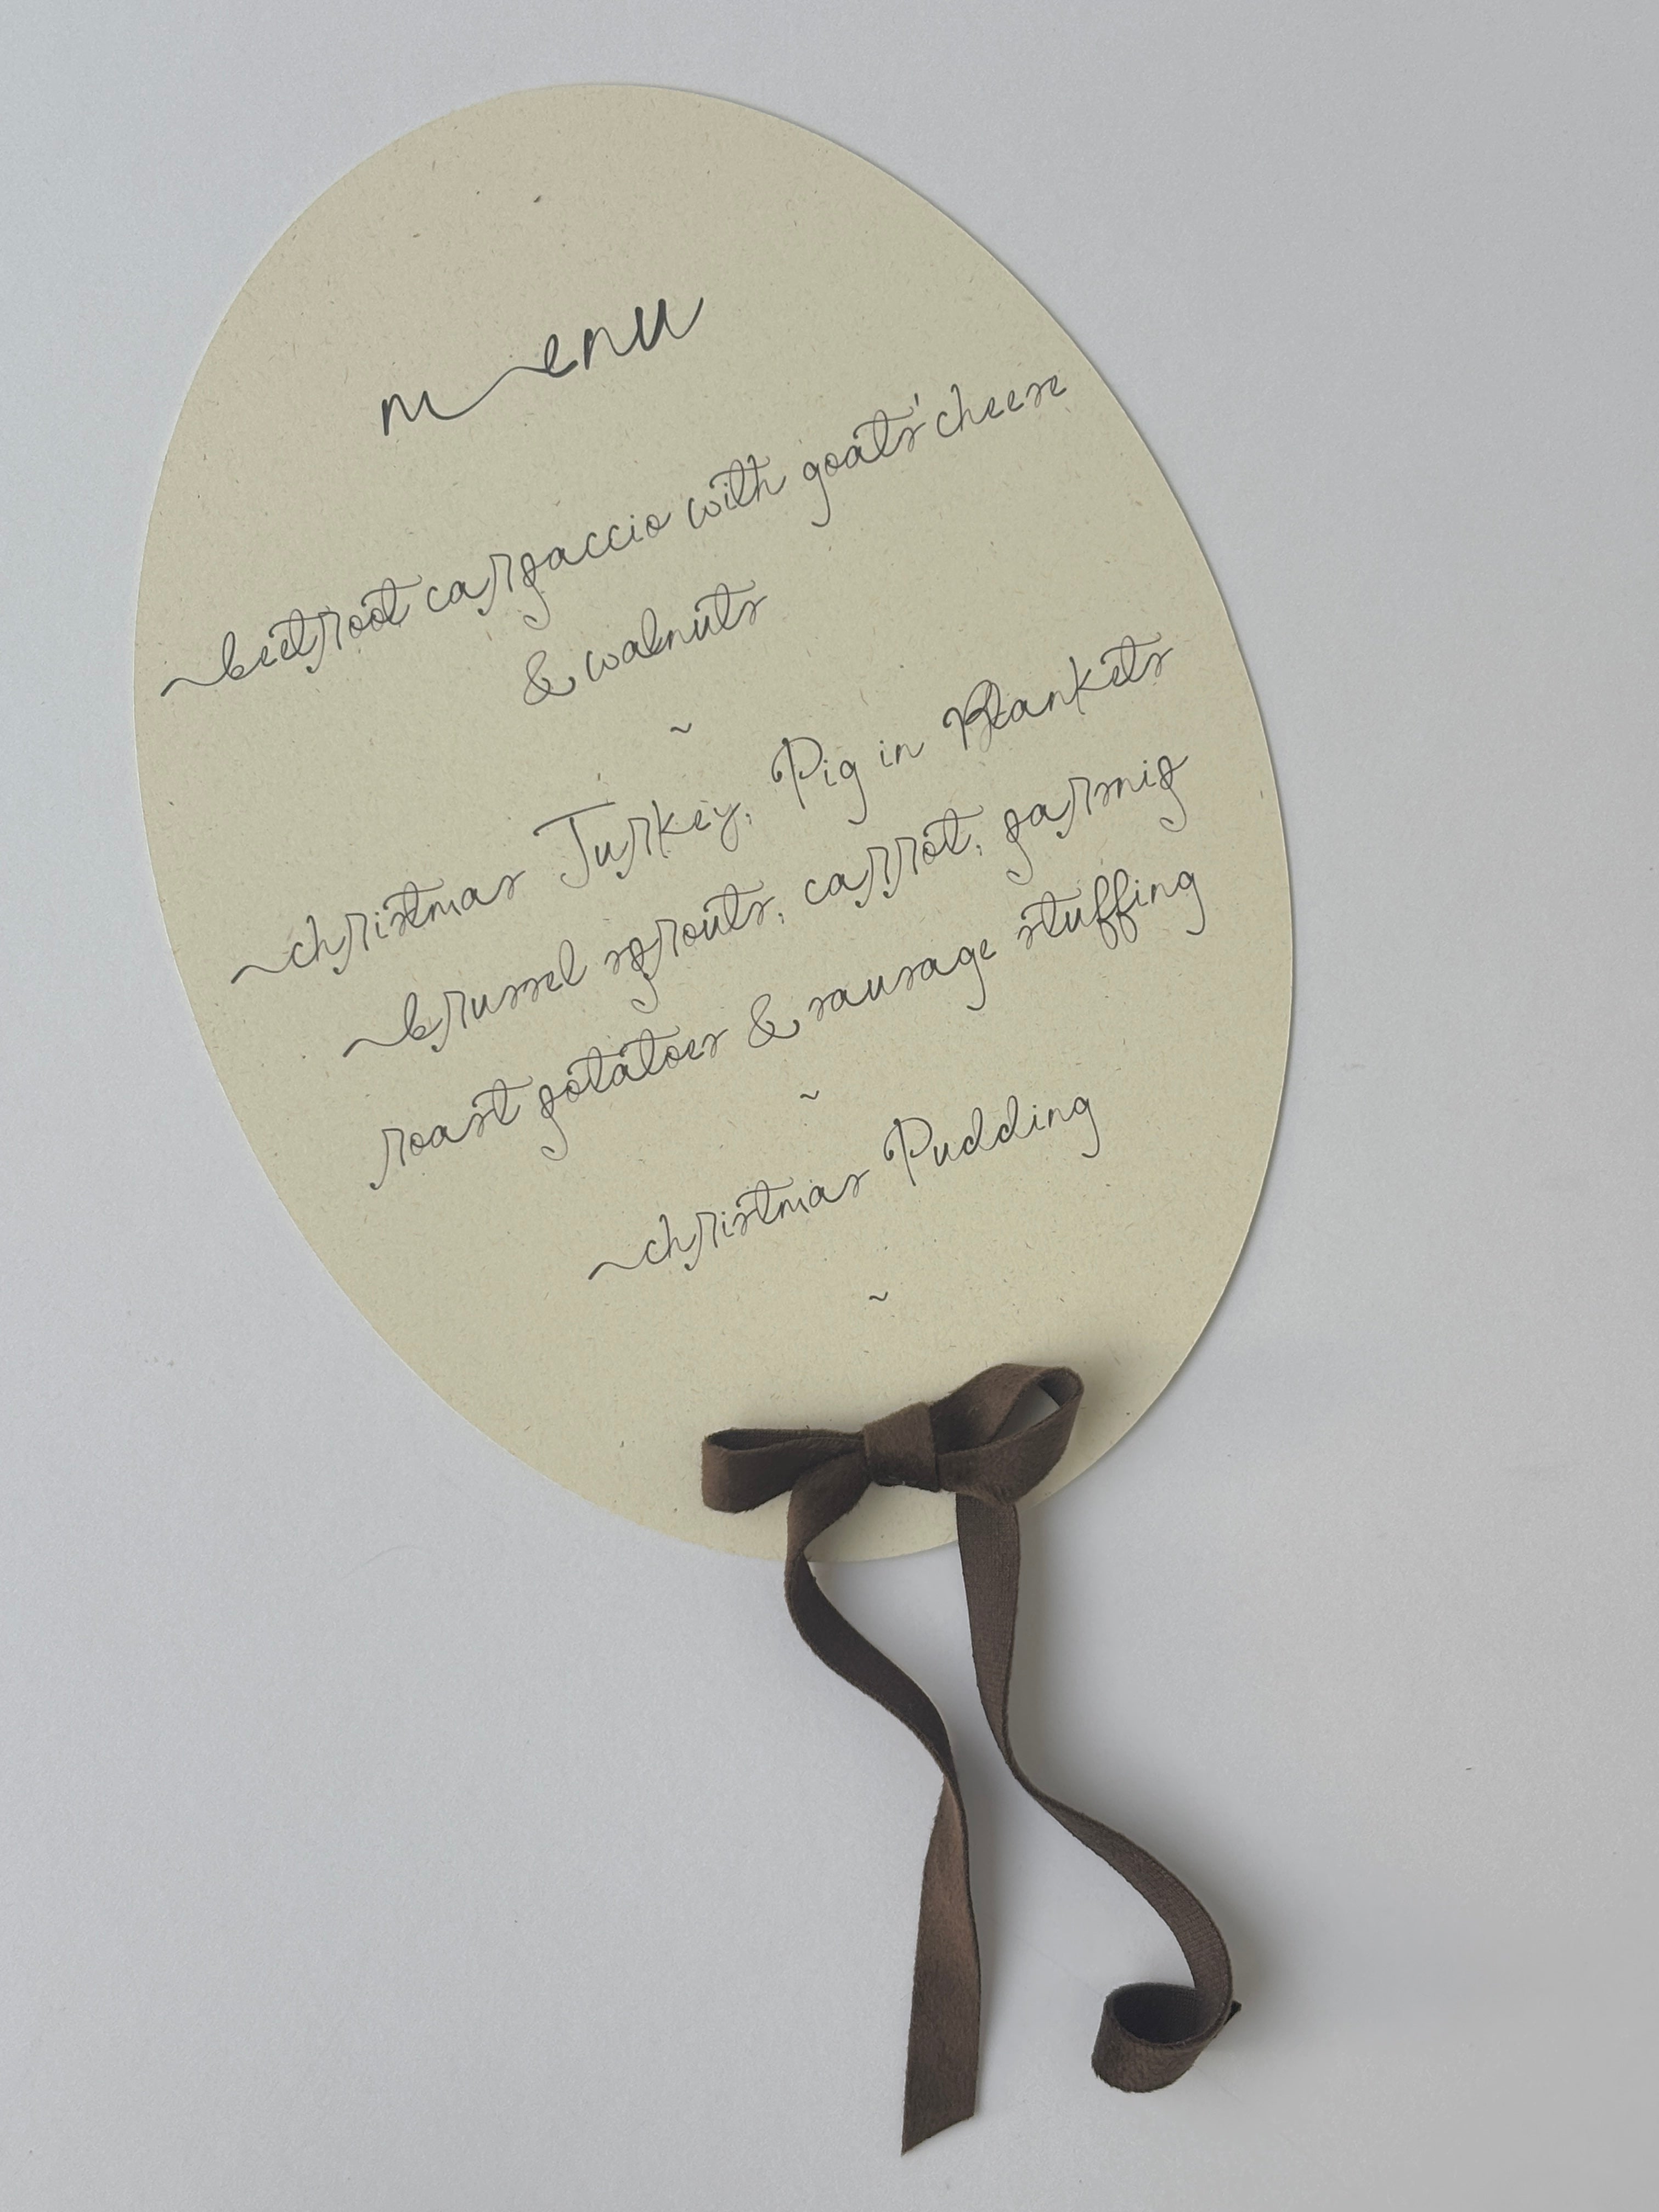 menu
beetroot carpaccio with goats' cheese
& walnuts
~
christmas Turkey, Pig in Blankets
brussel sprouts, carrot, parsnip
roast potatoes & sausage stuffing
~
christmas Pudding
~